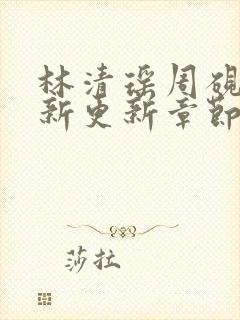 林清瑶周砚
新更新章节
莎拉